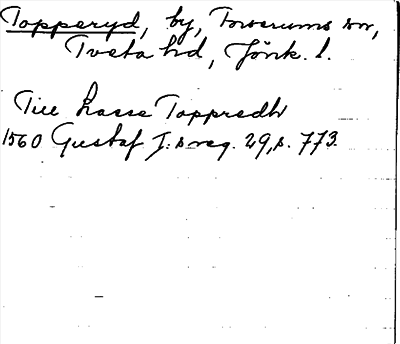 Topperyd, by, Torserums sn,
Tveta hd, Jönk. l.
Till Lasse Toppredh
1560 Gustaf I:s reg. 29, s. 773.